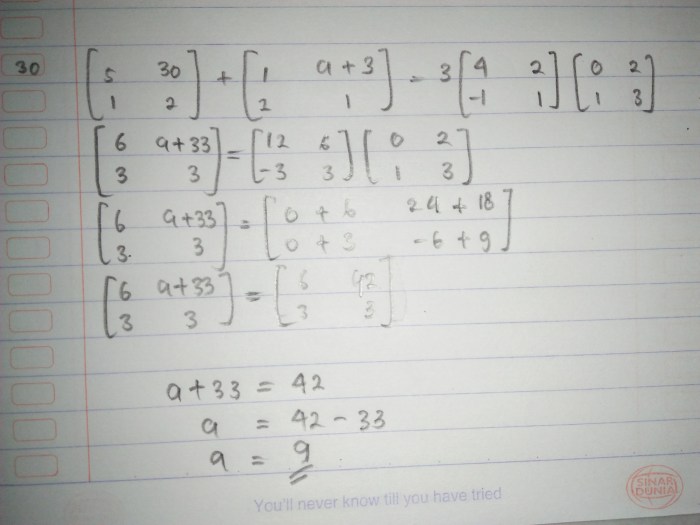 30 [5 30 1 2] + [1 a+3 2 1] = 3 [4 2 -1 1] [0 2 1 3]
[6 a+33 3 3] = [12 6 -3 3] [0 2 1 3]
[6 a+33 3. 3] = [0+6 24+18 0+3 -6+9]
[6 a+33 3 3] = [6 42 3 3]
a+33 = 42
a = 42-33
a = 9
You'll never know till you have tried
SINAR DUNIA